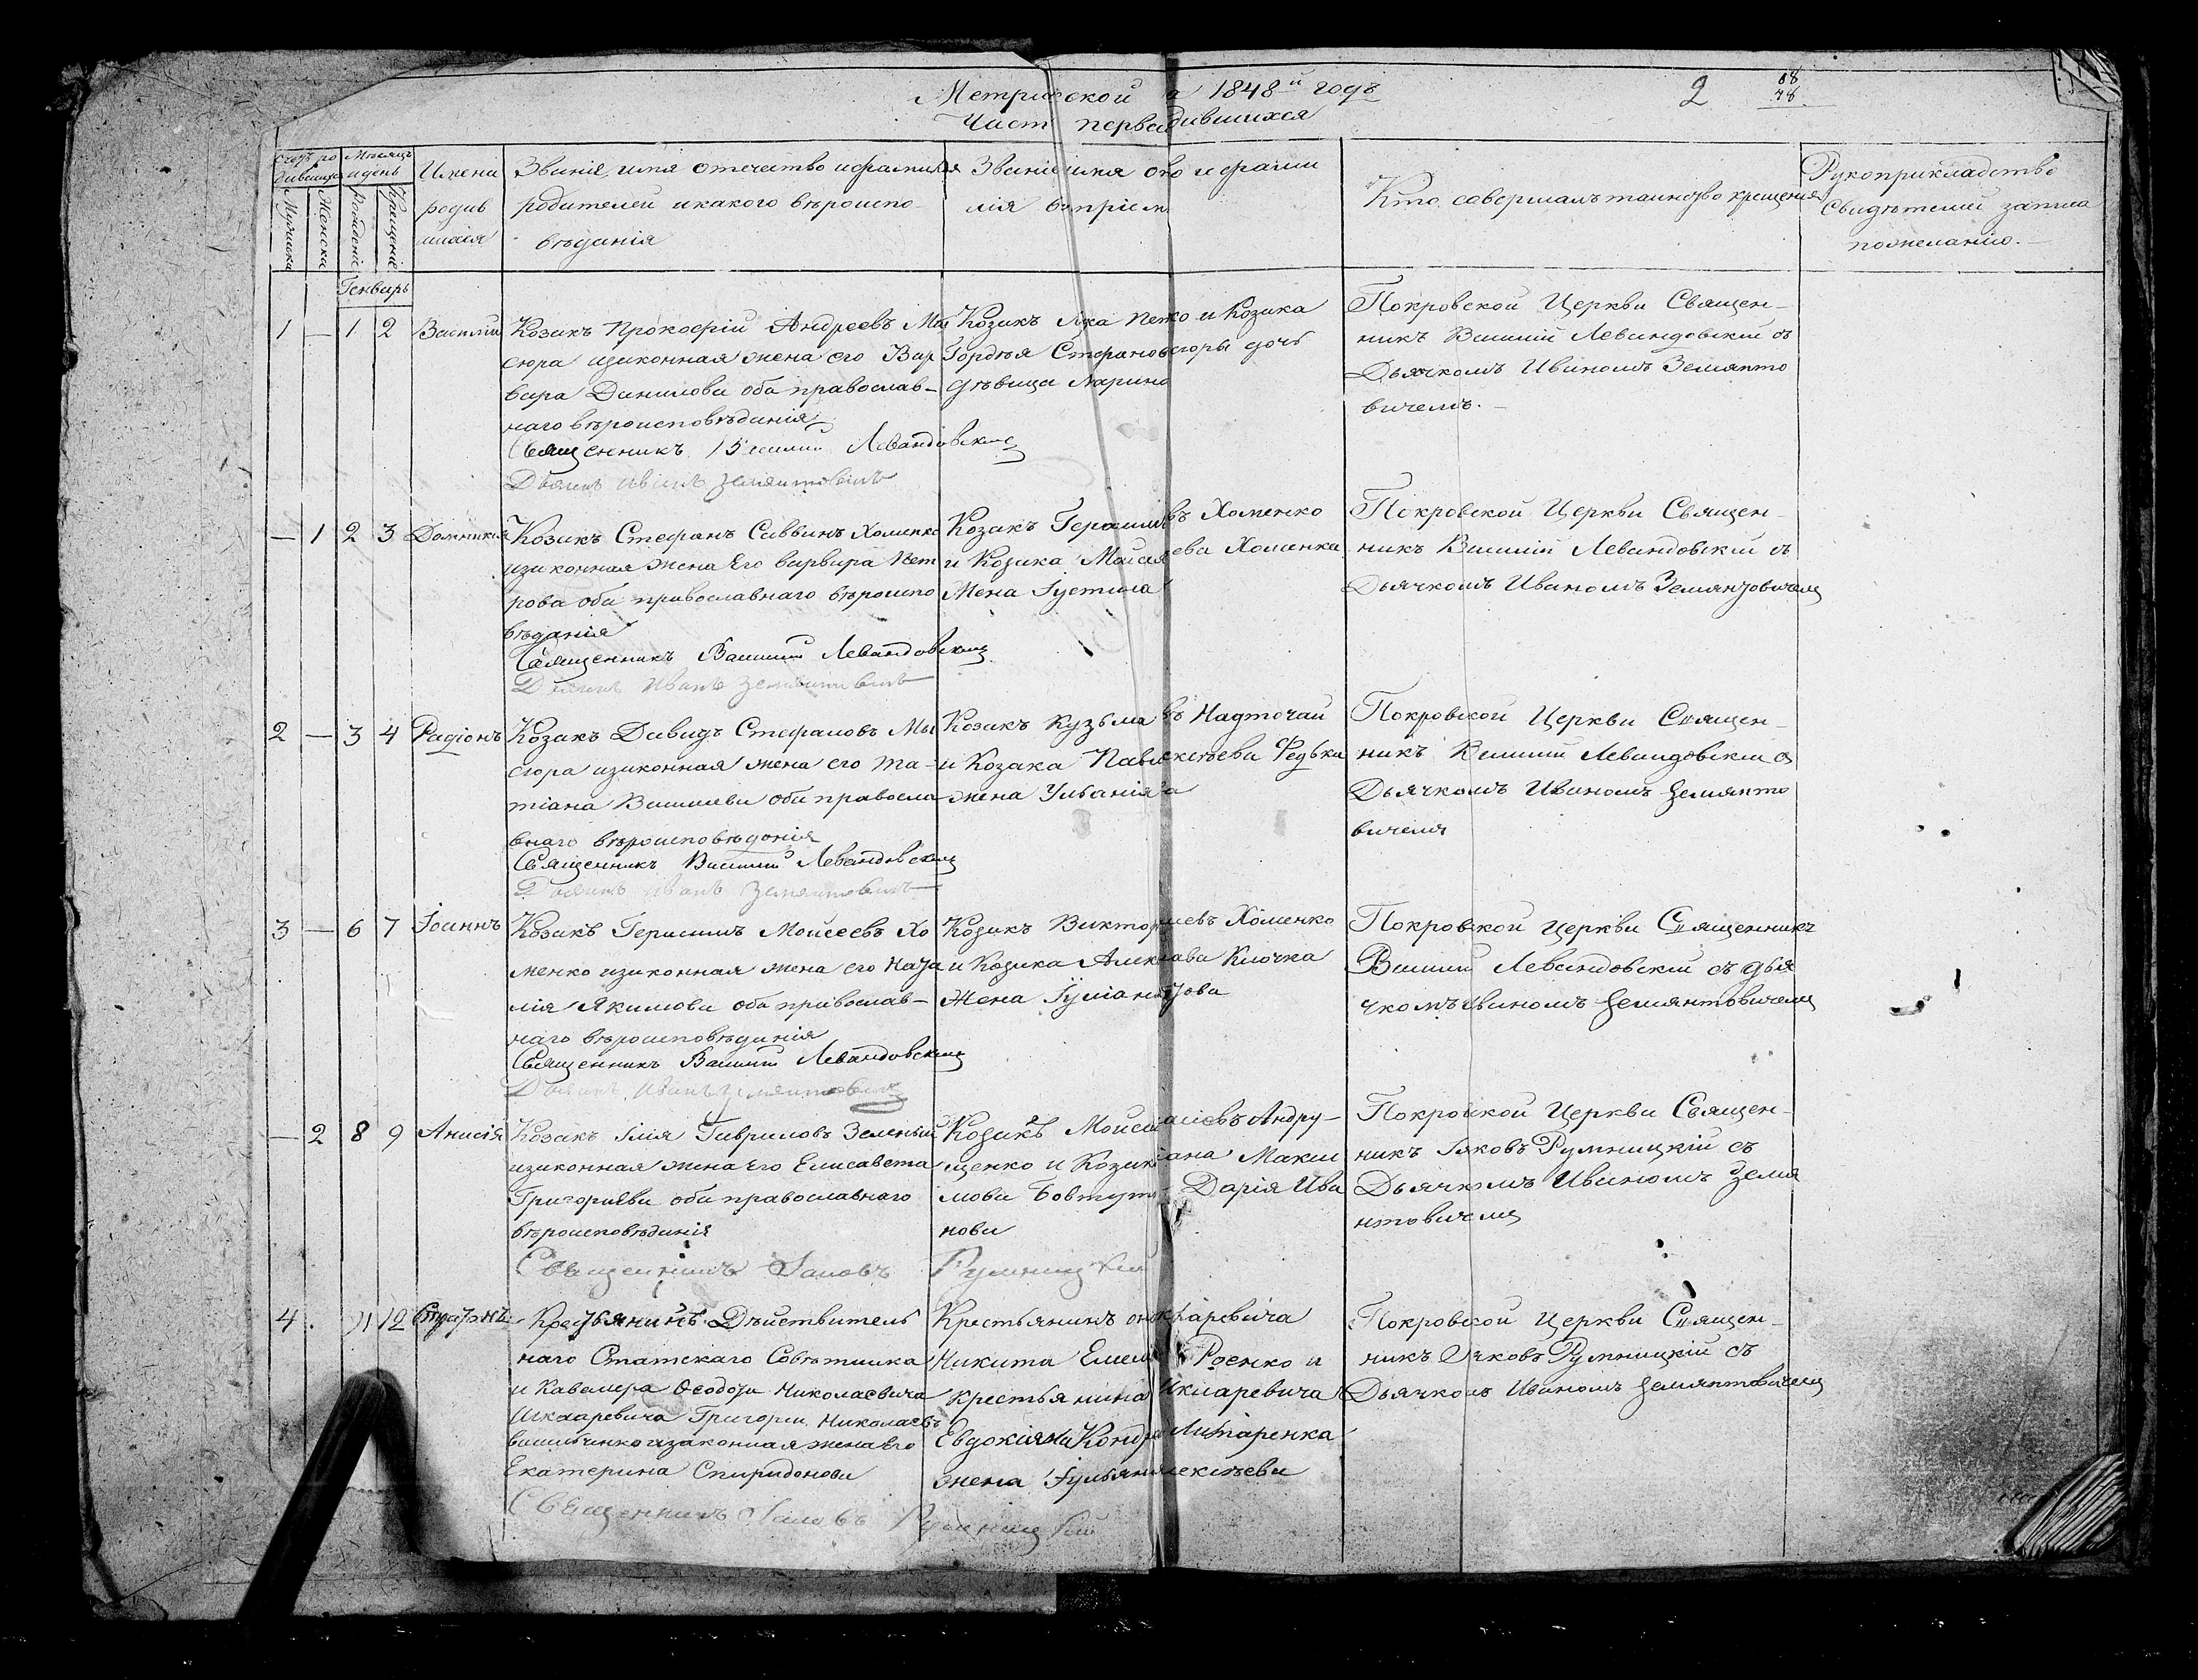 Метрической на 1848й годъ
2
Часть перва дившихся
Счетъ ро
дившихся
Мужеска
Женска
Мѣсяцъ
и день
Рожденіе
Крещеніе
Имена
родив
шихся
Званіе, имя отечество и фамилія
родителей и какого вѣроиспо-
вѣданія
Званіе имя и фами
лія воспріем
Кто совершалъ таинство крещенія
Рукоприкладство
свидѣтелей записа
по желанію.
Генварь
1 — 1 2 Василій
Козакъ Прокофій Андреевъ Ма
сюра и законная жена его Вар
вара Данилова оба православ-
наго вѣроисповѣданія
Священникъ Василій Левандовскій
Дьячекъ Иванъ Земянтовичъ
Козакъ и Козака
Гордѣя Стефанов дочь
дѣвица Марина
Покровской Церкви Священ-
никъ Василій Левандовскій съ
Дьячкомъ Иваномъ Земянто
вичемъ.
— 1 2 3 Домникія
Козакъ Стефанъ Саввинъ Хоменко
и законная жена Его Варвара Пет
рова оба православнаго вѣроиспо
вѣданія
Священникъ Василій Левандовскій
Дьячекъ Иванъ Земянтовичъ
Козакъ Герасим въ Хоменко
и Козака Мойсея ева Хоменка
Жена Іустина
Покровской Церкви Священ-
никъ Василій Левандовскій съ
Дьячкомъ Иваномъ Земянтовичемъ
2 — 3 4 Радіонъ
Козакъ Давидъ Стефановъ Ма
сюра и законная жена его Та-
тіана Василіева оба правосла
внаго вѣроисповѣданія
Священникъ Василій Левандовскій
Дьячекъ Иванъ Земянтовичъ
Козакъ Кузьма въ Надточай
и Козака Павл ексѣева Федька
жена Ульянія
Покровской Церкви Священ-
никъ Василій Левандовскій съ
Дьячкомъ Иваномъ Земянто
вичемъ
3 — 6 7 Іоаннъ
Козакъ Герасимъ Мойсеевъ Хо
менко и законная жена его Ната
лія Якимова оба православ-
наго вѣроисповѣданія
Священникъ Василій Левандовскій
Дьячекъ Иванъ Земянтовичъ
Козакъ Виктор иевъ Хоменко
и Козака Алек ава Клочка
Жена Іуліан ова
Покровской Церкви Священникъ
Василій Левандовскій съ дья
чкомъ Иваномъ Земянтовичемъ
— 2 8 9 Анисія
Козакъ Илія Гавриловъ Зеленый
и законная жена Его Елисавета
Григоріева оба православнаго
вѣроисповѣданія
Священникъ Іаковъ Румницкій
Козакъ Мойсей Андру-
щенко и Козак ана Макси
мова Бовтут Дарія Ива
нова
Покровской Церкви Священ-
никъ Іяковъ Румницкій съ
Дьячкомъ Иваномъ Земя
нтовичемъ
4 11 12
Крестьянинъ Дѣйствитель
наго Статскаго Совѣтника
и Кавалера Ѳеодора Николаевича
Шкляревича Григорій Николаевъ
и законная жена Его
Екатерина Спиридонова
Священникъ Іаковъ Румницкій
Крестьянинъ аревича
Никита Емел Роенко и
Крестьянина Шкляревича
Евдокія Литаренка
жена Іульян лексѣева
Покровской Церкви Священ-
никъ Іяковъ Румницкій съ
Дьячкомъ Иваномъ Земянтовичемъ